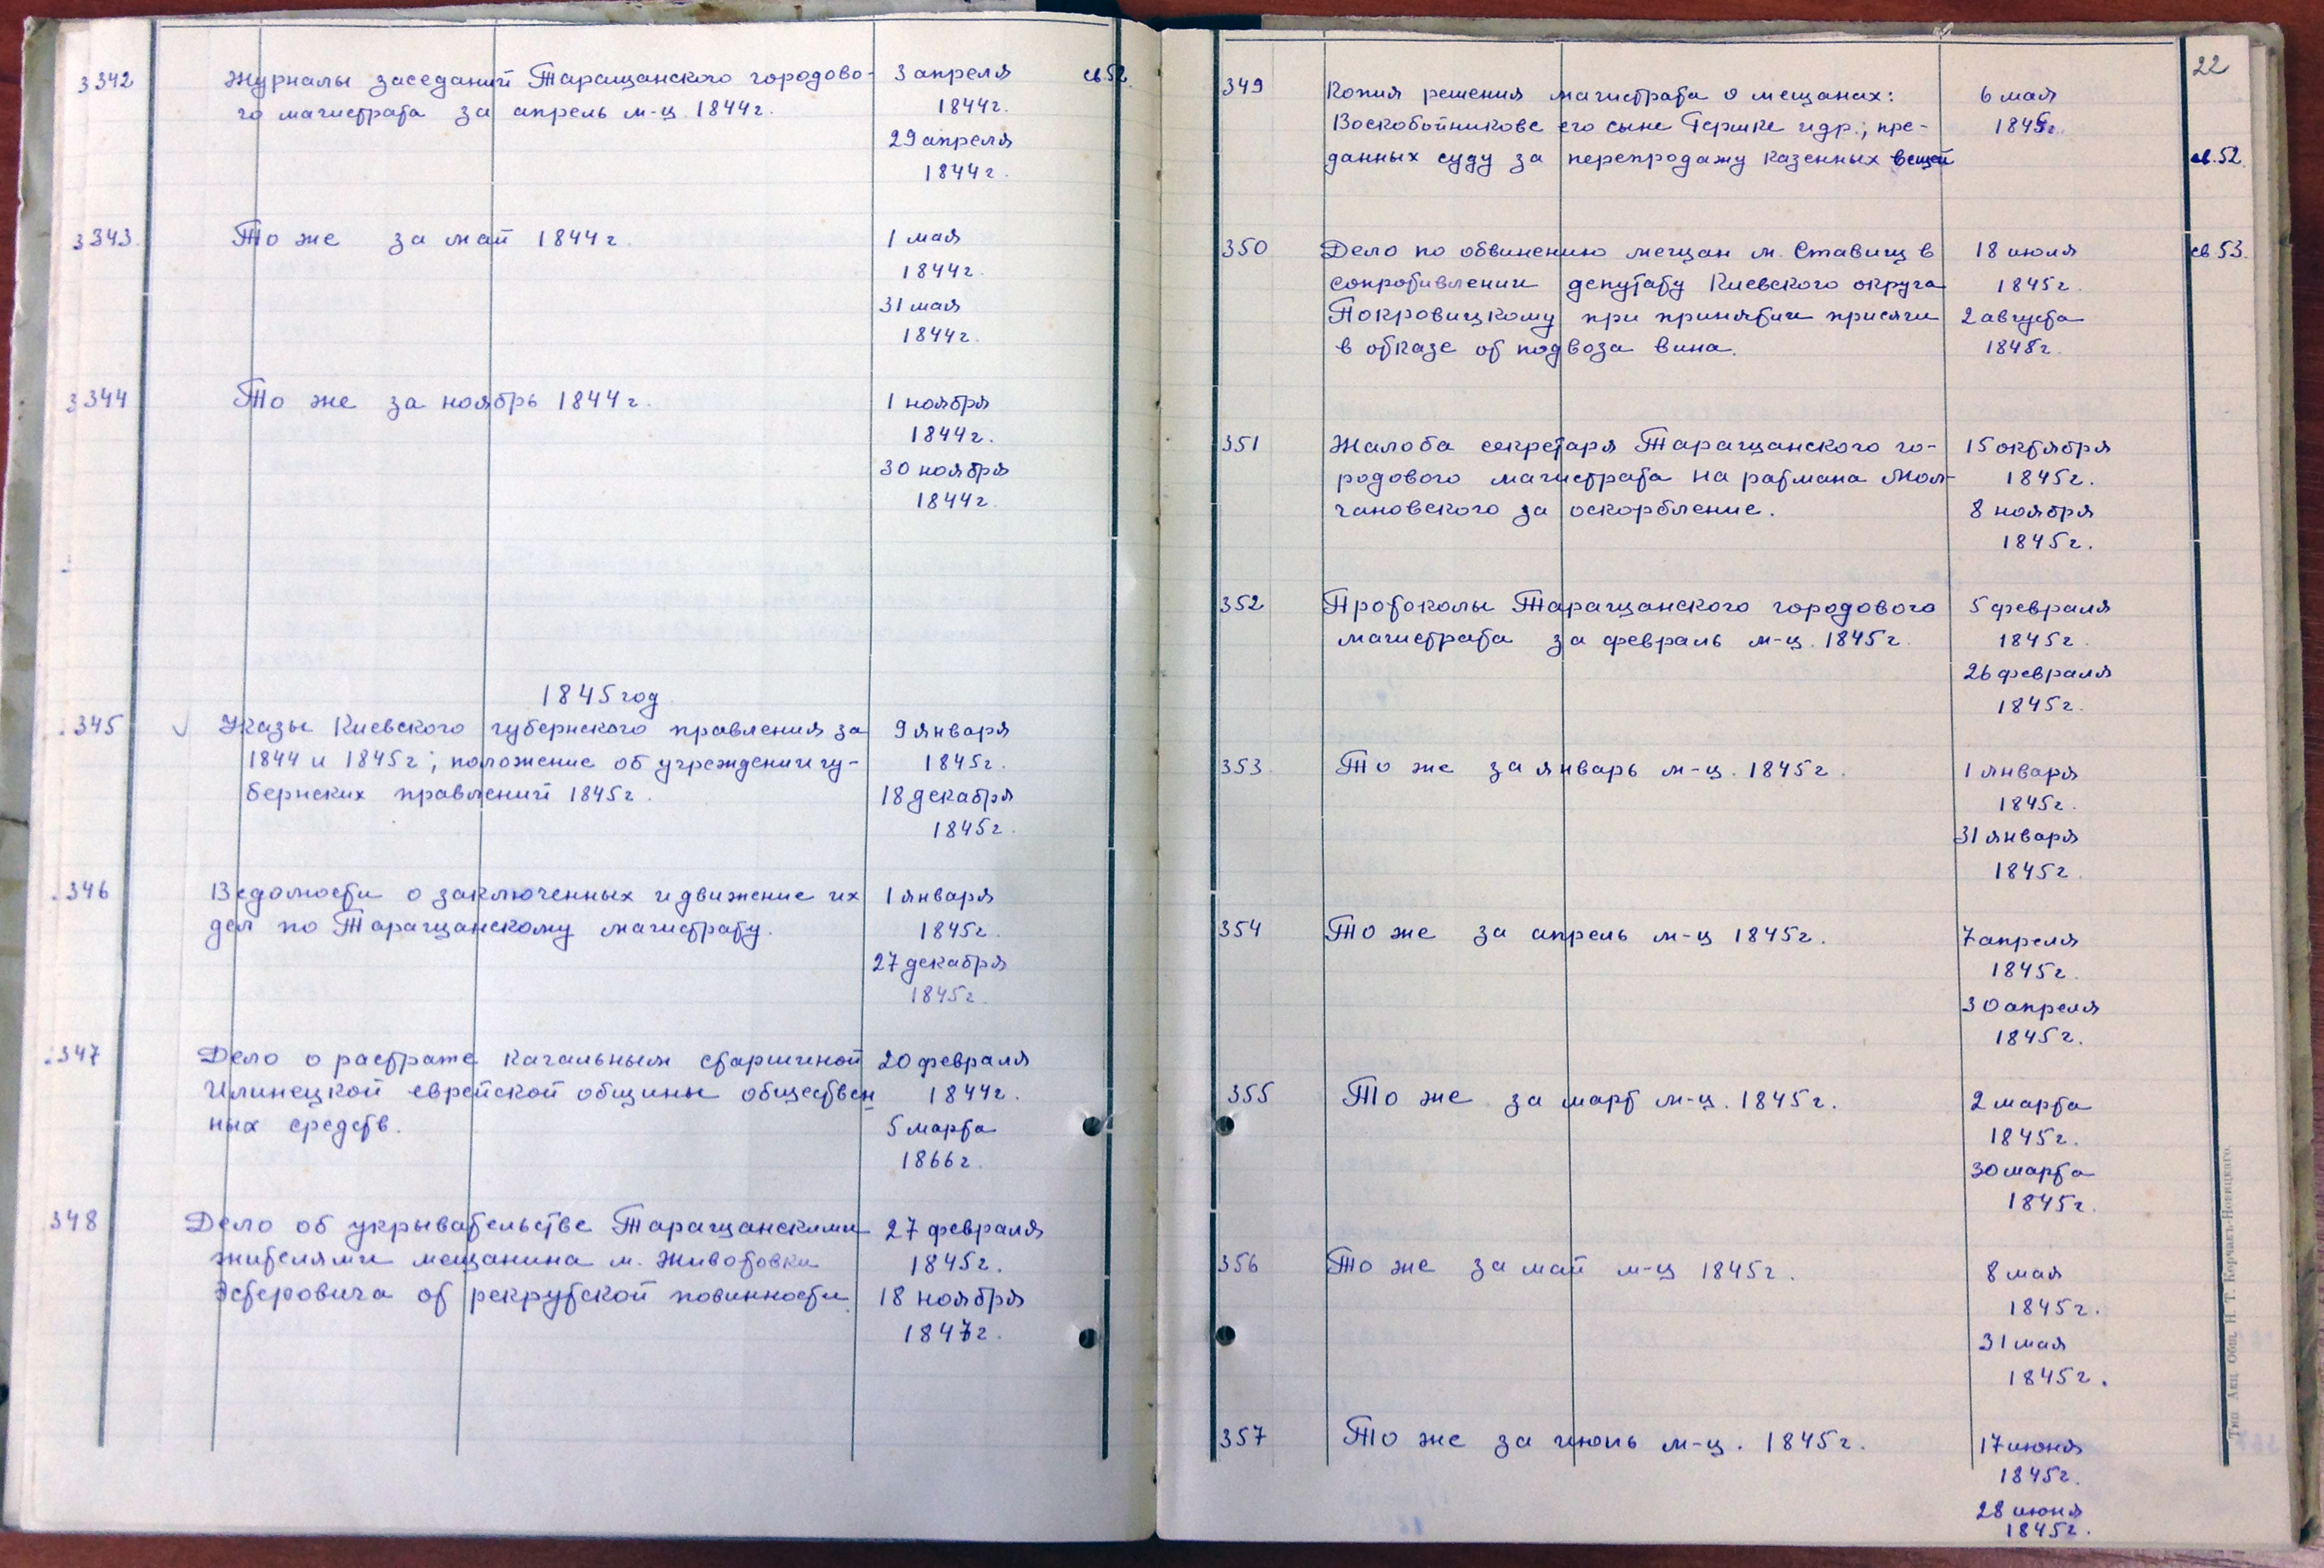 3342 Журналы заседаний Таращанского городово- 3 апреля св.52
го магистрата за апрель м-ц 1844г. 1844г.
29 апреля
1844г.
3343 То же за май 1844г. 1 мая
1844г.
31 мая
1844г.
3344 То же за ноябрь 1844г. 1 ноября
1844г.
30 ноября
1844г.
1845 год
345 Указы Киевского губернского правления за 9 января
1844 и 1845г; положение об учреждении гу- 1845г.
бернских правлений 1845г. 18 декабря
1845г.
346 Ведомости о заключенных и движение их 1 января
дел по Таращанскому магистрату. 1845г.
27 декабря
1845г.
347 Дело о растрате кагальным старшиной 20 февраля
Илинецкой еврейской общины обществен 1844г.
ных средств. 5 марта
1866г.
348 Дело об укрывательстве Таращанскими 27 февраля
жителями мещанина м. Животовки 1845г.
Эстеровича от рекрутской повинности. 18 ноября
1847г.
22
349 Копия решения магистрата о мещанах: 6 мая
Воскобойникове его сыне Гершке и др.; пре- 1845г.
данных суду за перепродажу казенных вещей св.52
350 Дело по обвинению мещан м. Ставищ в 18 июля св 53.
сопротивлении депутату Киевского округа 1845г.
Покровицкому при принятии присяги 2 августа
в отказе от подвоза вина. 1848г.
351 Жалоба секретаря Таращанского го- 15 октября
родового магистрата на ратмана Мол- 1845г.
чановского за оскорбление. 8 ноября
1845г.
352 Протоколы Таращанского городового 5 февраля
магистрата за февраль м-ц. 1845г. 1845г.
26 февраля
1845г.
353 То же за январь м-ц. 1845г. 1 января
1845г.
31 января
1845г
354 То же за апрель м-ц 1845г. 7 апреля
1845г.
30 апреля
1845г.
355 То же за март м-ц. 1845г. 2 марта
1845г.
30 марта
1845г.
356 То же за май м-ц 1845г. 8 мая
1845г.
31 мая
1845г.
357 То же за июнь м-ц. 1845г. 17 июня
1845г.
28 июня
1845г.
Тип. Акц. Общ. Н. Т. Корчакъ-Новицкаго.